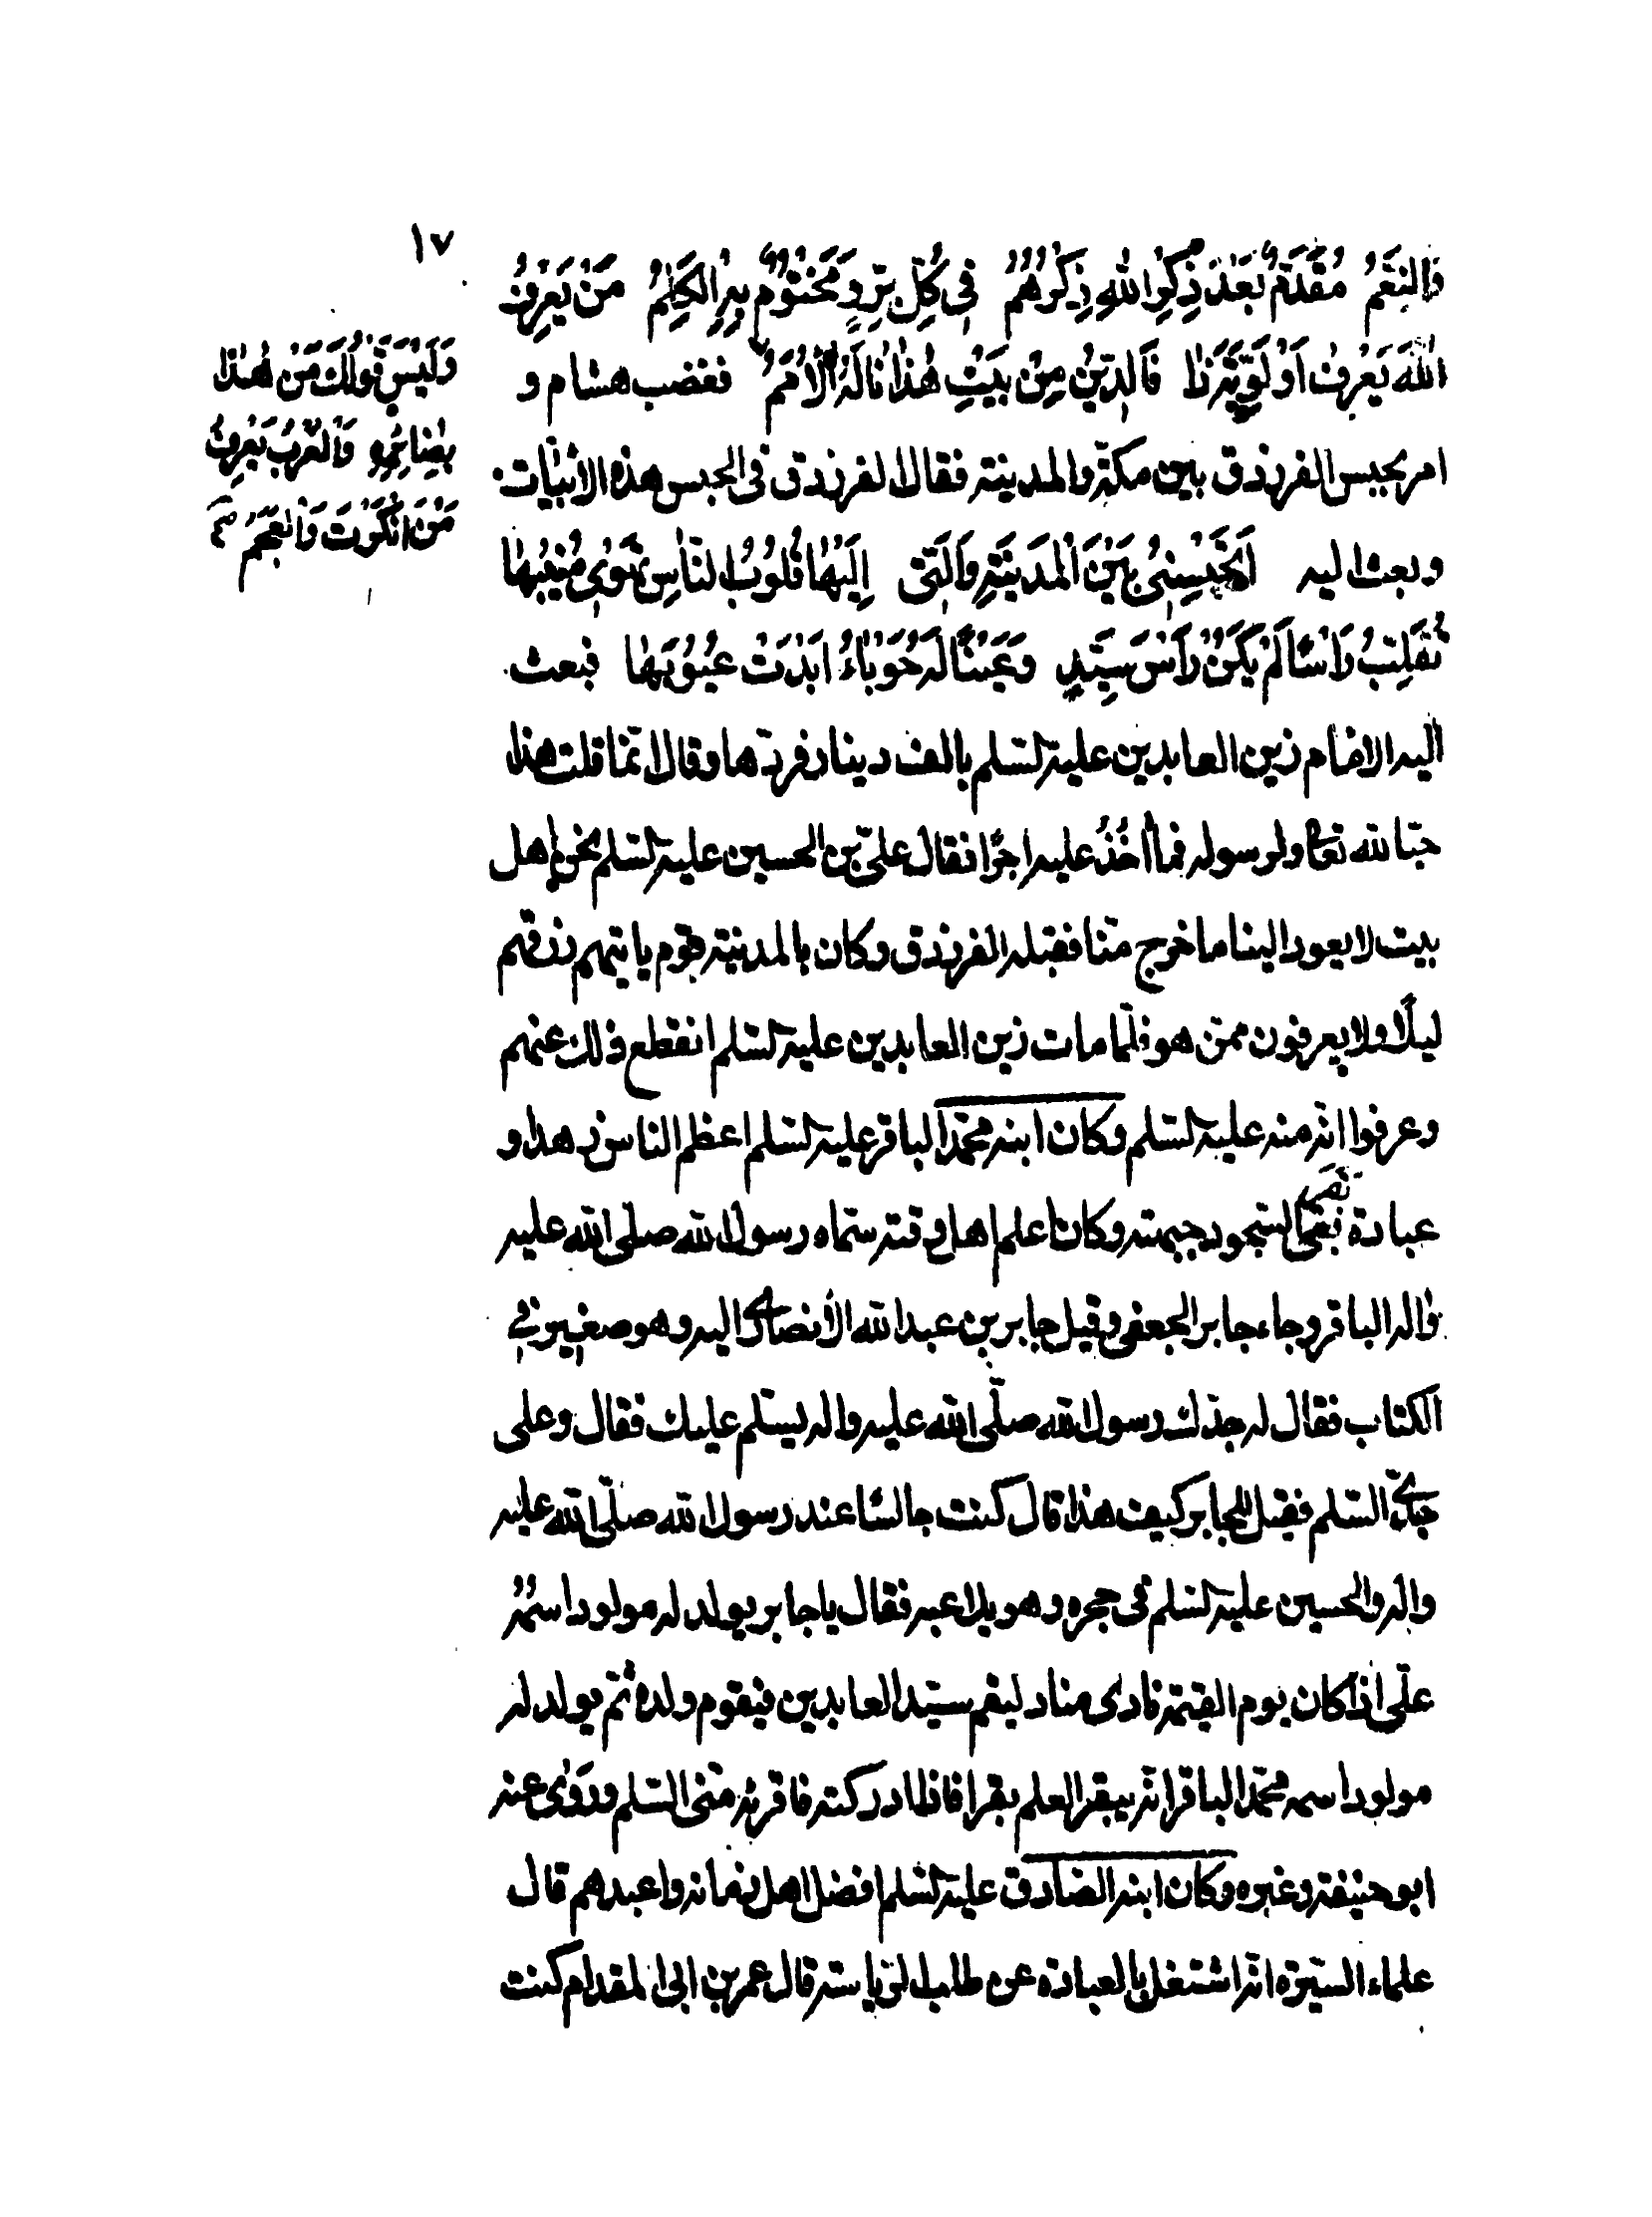 ١٧
وَالنِّعَمُ مُقَدَّمٌ بَعْدَ ذِكْرِ اللهِ ذِكْرُهُمُ فِى كُلِّ بِرٍّ وَمَخْتُومٌ بِهِ الْكَلِمُ مَنْ يَعْرِفُ
اللهَ يَعْرِفْ اَوَّلِيَّةَ ذَا فَالدِّينُ مِنْ بَيْتِ هٰذَا نَالَهُ الْاُمَمُ فغضب هشام و
امر بحبس الفرزدق بين مكّة والمدينة فقال الفرزدق فى الحبس هذه الابيات
وبعث اليه اَتَحْبِسُنِى بَيْنَ الْمَدِينَةِ وَالَّتِى اِلَيْهَا قُلُوبُ النَّاسِ تَهْوِى مُنِيبُهَا
تُقَلِّبُ رَاْسًا لَمْ يَكُنْ رَاْسَ سَيِّدٍ وَعَيْنًا لَهُ حَوْبَاءُ اَبْدَتْ عُيُوبَهَا فبعث
اليه الامام زين العابدين عليه السّلم بالف دينار فردّها وقال انّما قلت هذا
حبّا لله تعالى ولرسوله فما اخُذُ عليه اجرًا فقال علىّ بن الحسين عليه السّلم نحن اهل
بيت لا يعود الينا ما خرج منّا فقبله الفرزدق وكان بالمدينة قوم ياتيهم رزقهم
ليلًا ولا يعرفون ممّن هو فلمّا مات زين العابدين عليه السّلم انقطع ذلك عنهم
وعرفوا انّه منه عليه السّلم وكان ابنه محمّد الباقر عليه السّلم اعظم الناس زهدا و
عبادة بقر السّجود جبهته وكان اعلم اهل وقته سمّاه رسول الله صلّى الله عليه
واله الباقر وجاء جابر الجعفى وقيل جابر بن عبد الله الأنصارى اليه وهو صغير فى
الكتاب فقال له جدّك رسول الله صلّى الله عليه واله يسلّم عليك فقال وعلى
جدّى السّلم فقيل لجابر كيف هذا قال كنت جالسًا عند رسول الله صلّى الله عليه
واله والحسين عليه السّلم فى حجره وهو يلاعبه فقال يا جابر يولد له مولود اسمُهُ
علّى اذا كان يوم القيمة نادى مناد ليقم سيّد العابدين فيقوم ولده ثمّ يولد له
مولود اسمه محمّد الباقر انّه يبقر العلم بقرا فاذا ادركته فاقرئه منّى السّلم وروى عنه
ابو حنيفة وغيره وكان ابنه الصّادق عليه السّلم افضل اهل زمانه واعبدهم قال
علماء السّيرة انّه اشتغل بالعبادة عن طلب الرّياسة قال عمر بن ابى المقدام كنت
وَلَيْسَ قَوْلُكَ مَنْ هٰذَا
بِضَائِرِهِ وَالْعُرْبُ تَعْرِفُ
مَنْ اَنْكَرْتَ وَالْعَجَمُ